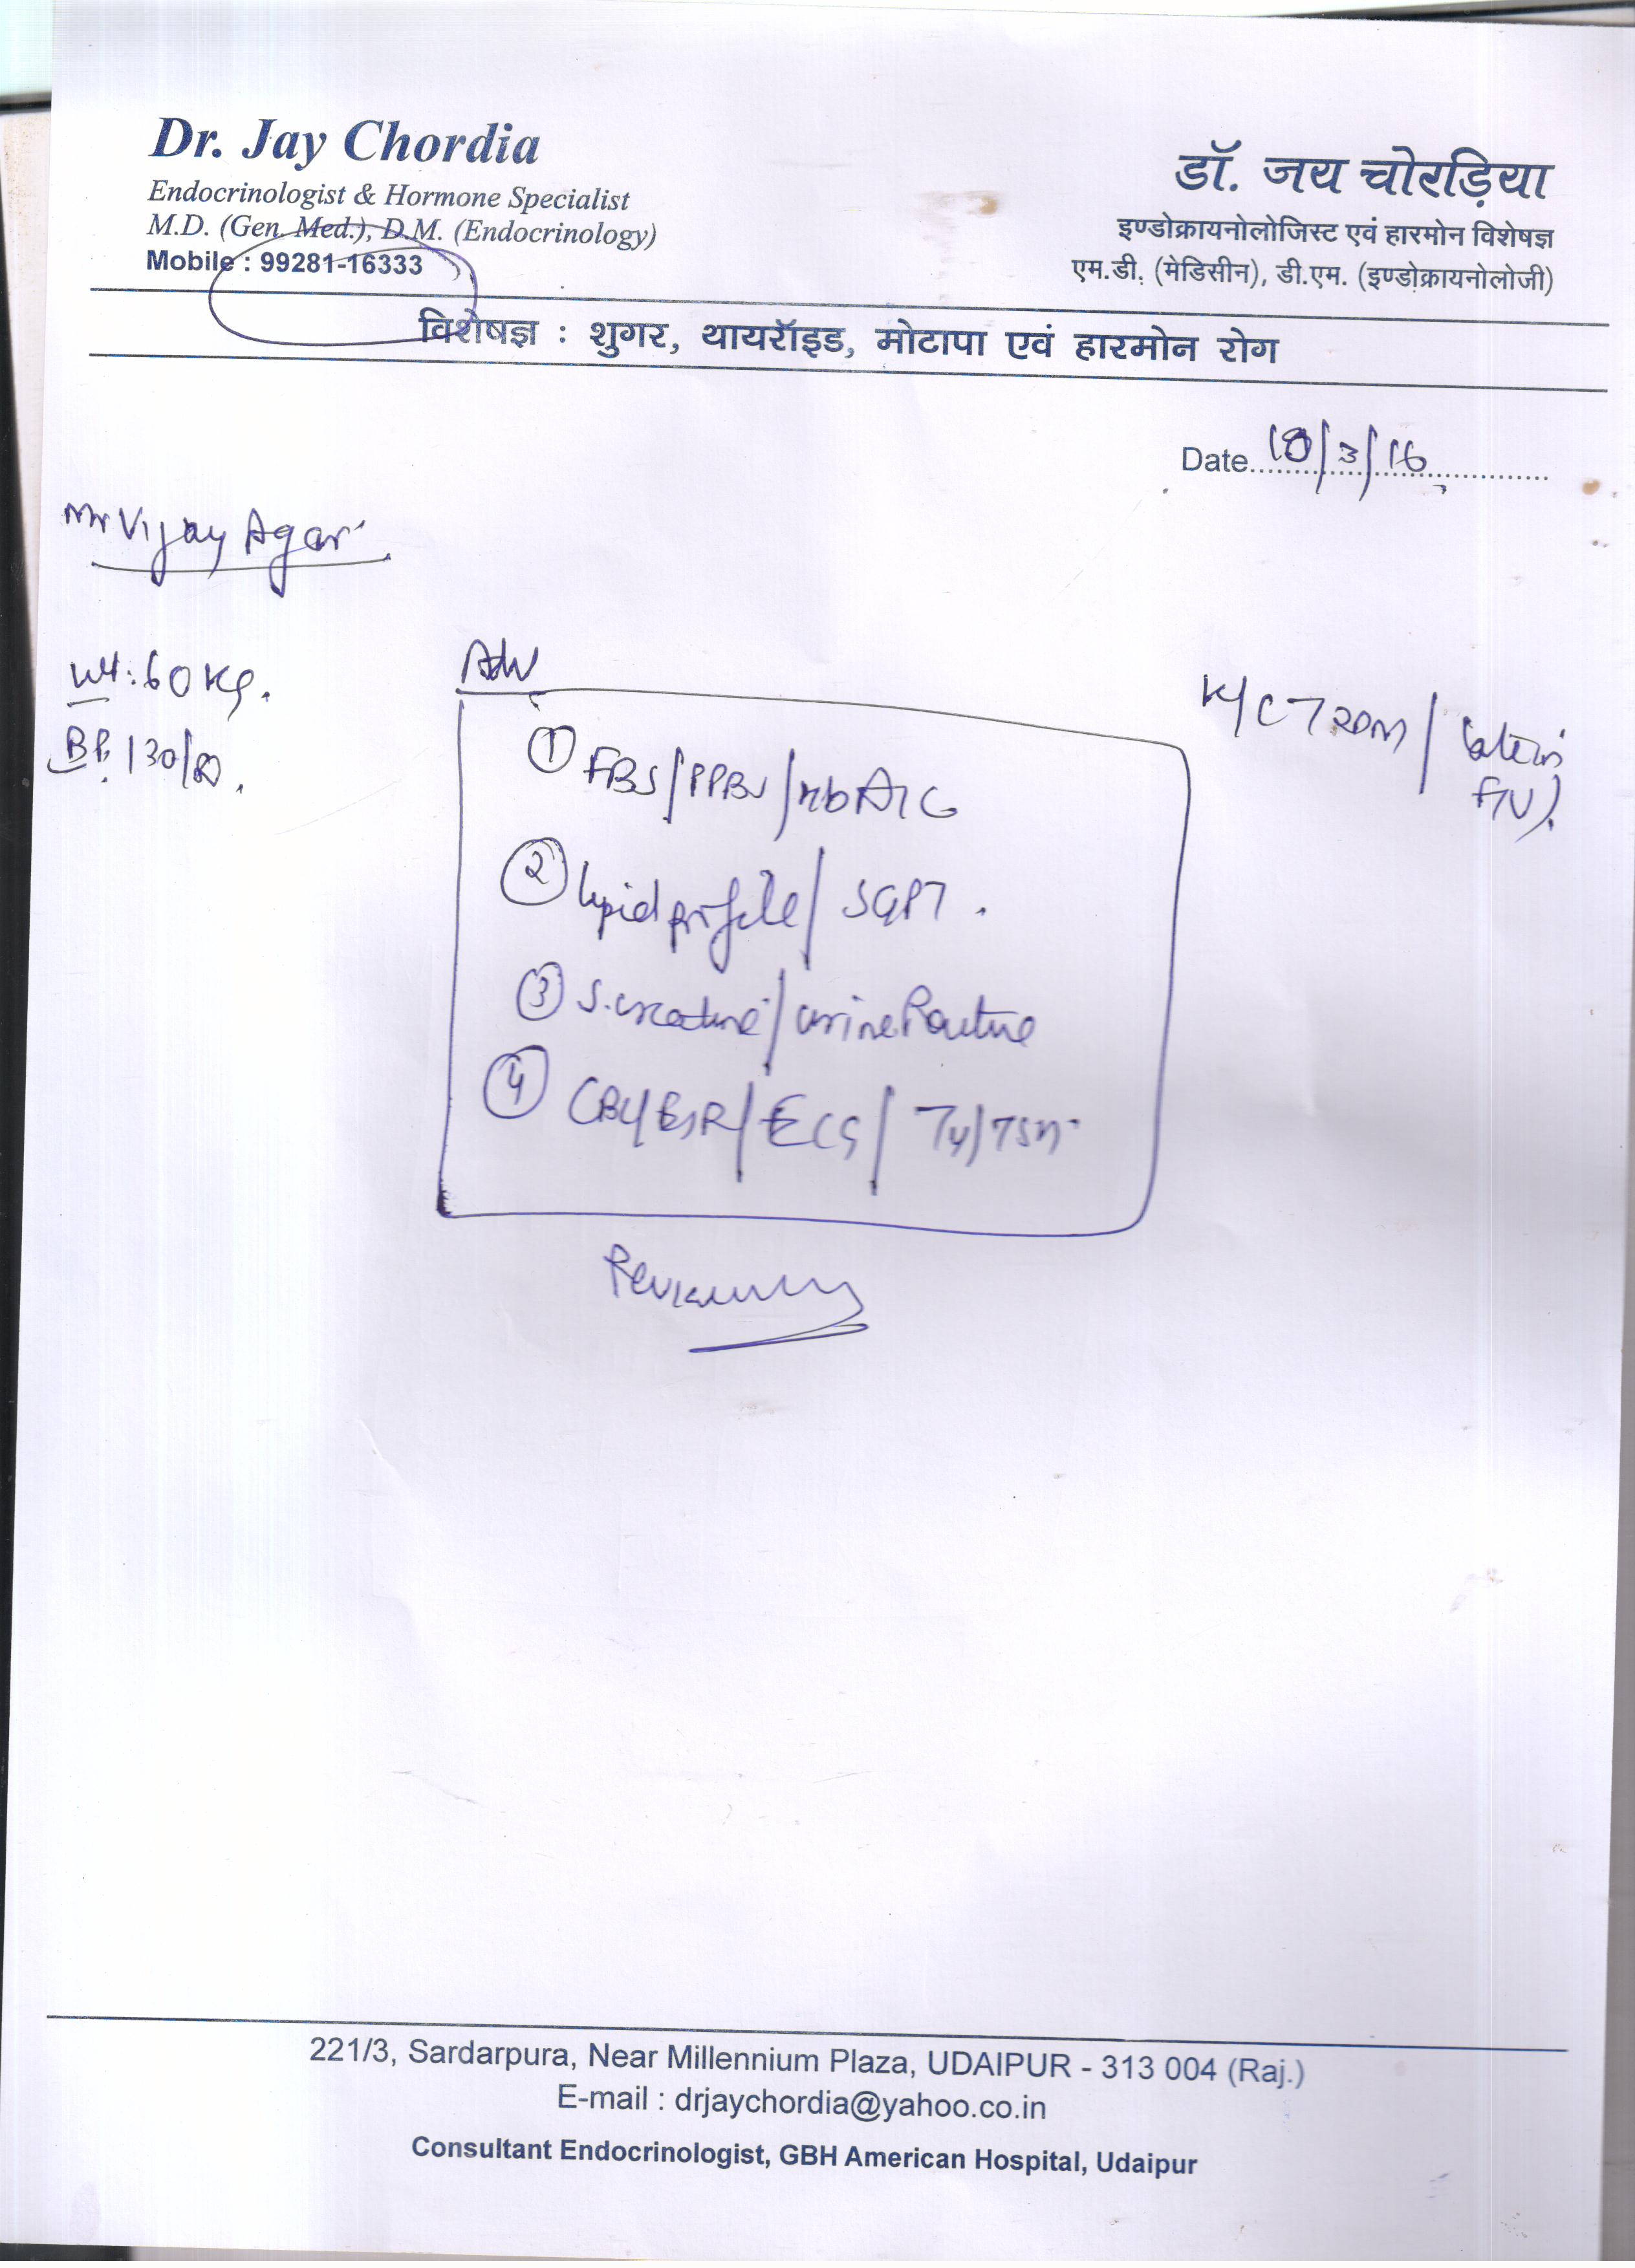 Dr. Jay Chordia
Endocrinologist & Hormone Specialist
M.D. (Gen. Med.), D.M. (Endocrinology)
Mobile : 99281-16333
डॉ. जय चोरड़िया
इण्डोक्रायनोलोजिस्ट एवं हारमोन विशेषज्ञ
एम.डी. (मेडिसीन), डी.एम. (इण्डोक्रायनोलोजी)
विशेषज्ञ : शुगर, थायरॉइड, मोटापा एवं हारमोन रोग
Date 18/3/16
Mr Vijay Agar
Wt: 60 Kg.
BP. 130/80.
K/C T2DM /
Adv
① FBS/PPBS/HbA1C
② Lipid profile/ SGPT.
③ S. creatinine/ urine Routine
④ CBC/ESR/ECG/ T4/TSH
221/3, Sardarpura, Near Millennium Plaza, UDAIPUR - 313 004 (Raj.)
E-mail : drjaychordia@yahoo.co.in
Consultant Endocrinologist, GBH American Hospital, Udaipur